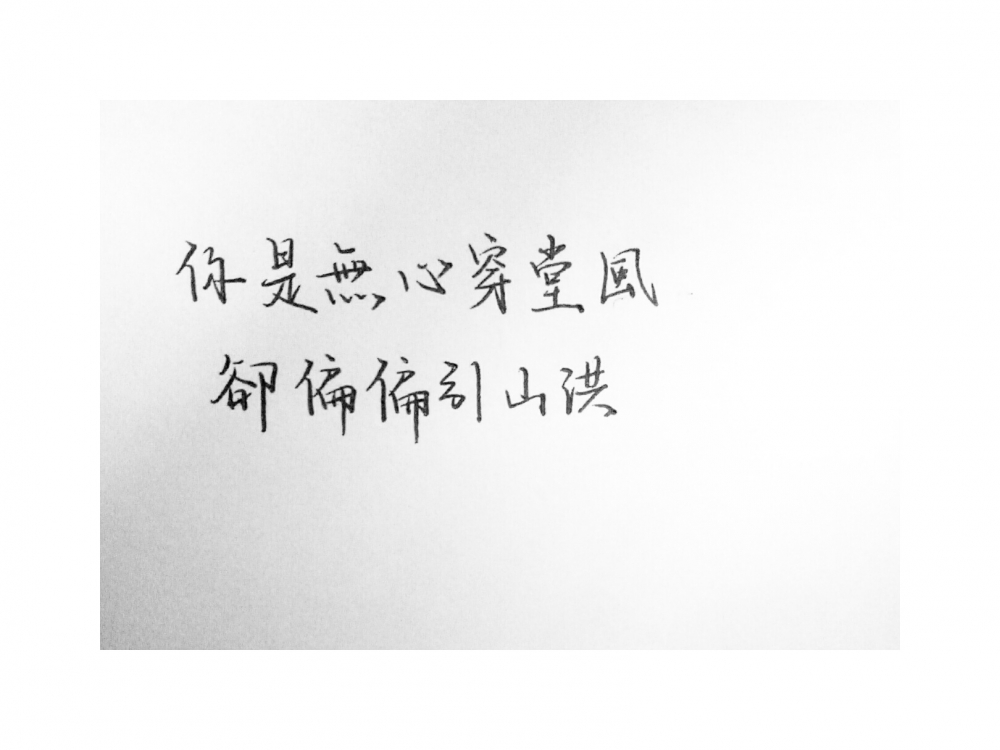 你是無心穿堂風
卻偏偏引山洪